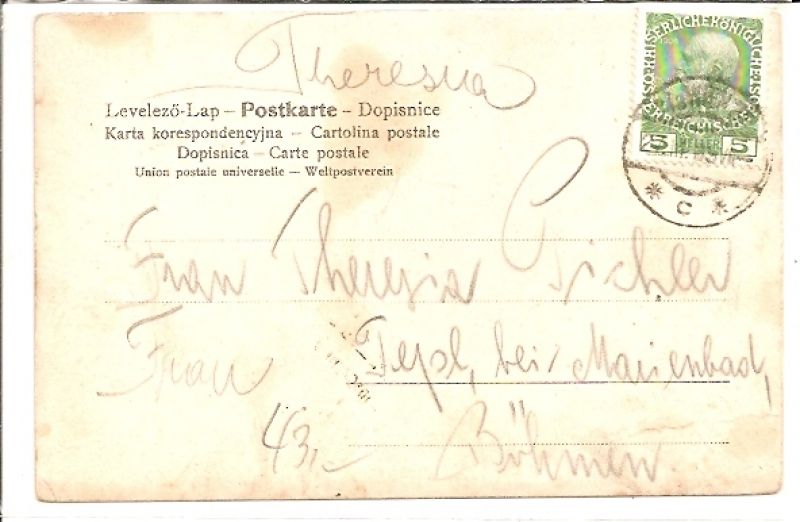 Theresia
Levelező-Lap – Postkarte – Dopisnice
Karta korespondencyjna – Cartolina postale
Dopisnica – Carte postale
Union postale universelle – Weltpostverein
KAISERLICHE KÖNIGLICHE
ÖSTERREICHISCHE
5 HELLER 5
* C *
Frau Theresia Pichler
Frau Tepl, bei Marienbad,
43,– Böhmen.